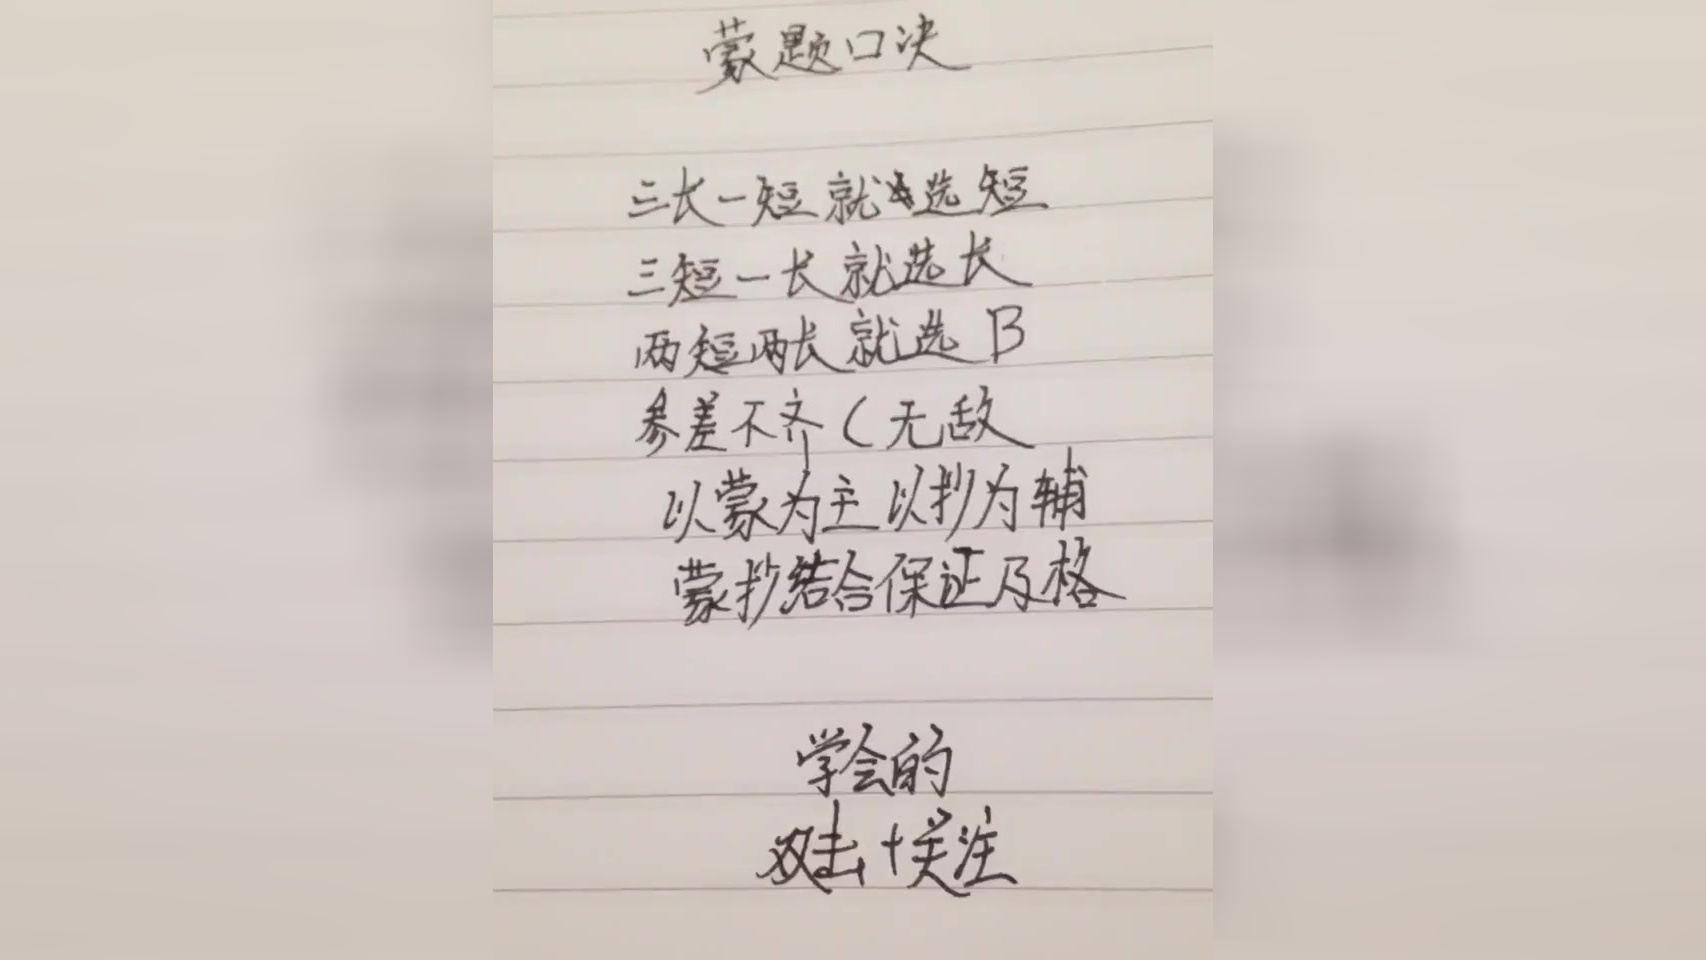 蒙题口决
三长一短就选短
三短一长就选长
两短两长就选B
参差不齐C无敌
以蒙为主以抄为辅
蒙抄结合保证及格
学会的
双击+关注